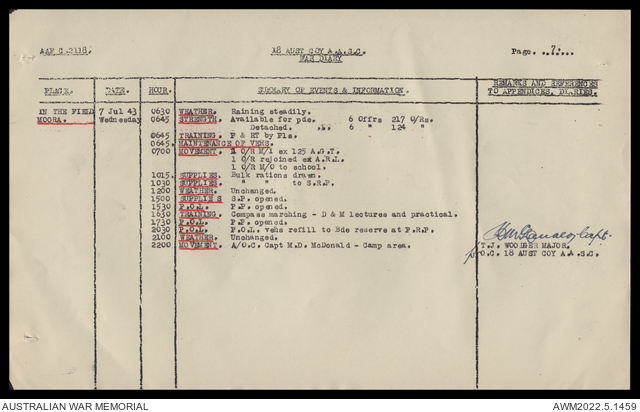 AAF C.2118.
18 AUST COY A.A.S.C.
WAR DIARY
Page. ..7...
PLACE. DATE. HOUR. SUMMARY OF EVENTS & INFORMATION. REMARKS AND REFERENCES
TO APPENDICES, DIARIES.
IN THE FIELD 7 Jul 43 0630 WEATHER. Raining steadily.
MOORA. Wednesday 0645 STRENGTH. Available for pde. 6 Offrs 217 O/Rs.
Detached. " 6 " 124 "
0645 TRAINING. P & RT by Pls.
0645. MAINTENANCE OF VEHS.
0700 MOVEMENT. 1 O/R M/I ex 125 A.G.T.
1 O/R rejoined ex A.R.L.
1 O/R M/O to school.
1015. SUPPLIES. Bulk rations drawn.
1030 SUPPLIES. " " to S.R.P.
1200 WEATHER. Unchanged.
1500 SUPPLIES S.P. opened.
1530 P.O.L. P.P. opened.
1630 TRAINING. Compass marching - D & M lectures and practical.
1730 P.O.L. P.P. opened.
2030 P.O.L. P.O.L. vehs refill to Bde reserve at P.R.P.
2100 WEATHER. Unchanged.
2200 MOVEMENT. A/O.C. Capt M.D. McDonald - Camp area.
Capt.
T.J. WOODGER MAJOR.
O.C. 18 AUST COY A.A.S.C.
AUSTRALIAN WAR MEMORIAL
AWM2022.5.1459